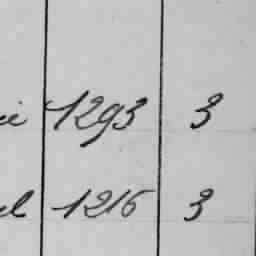 1293 3
1216 3